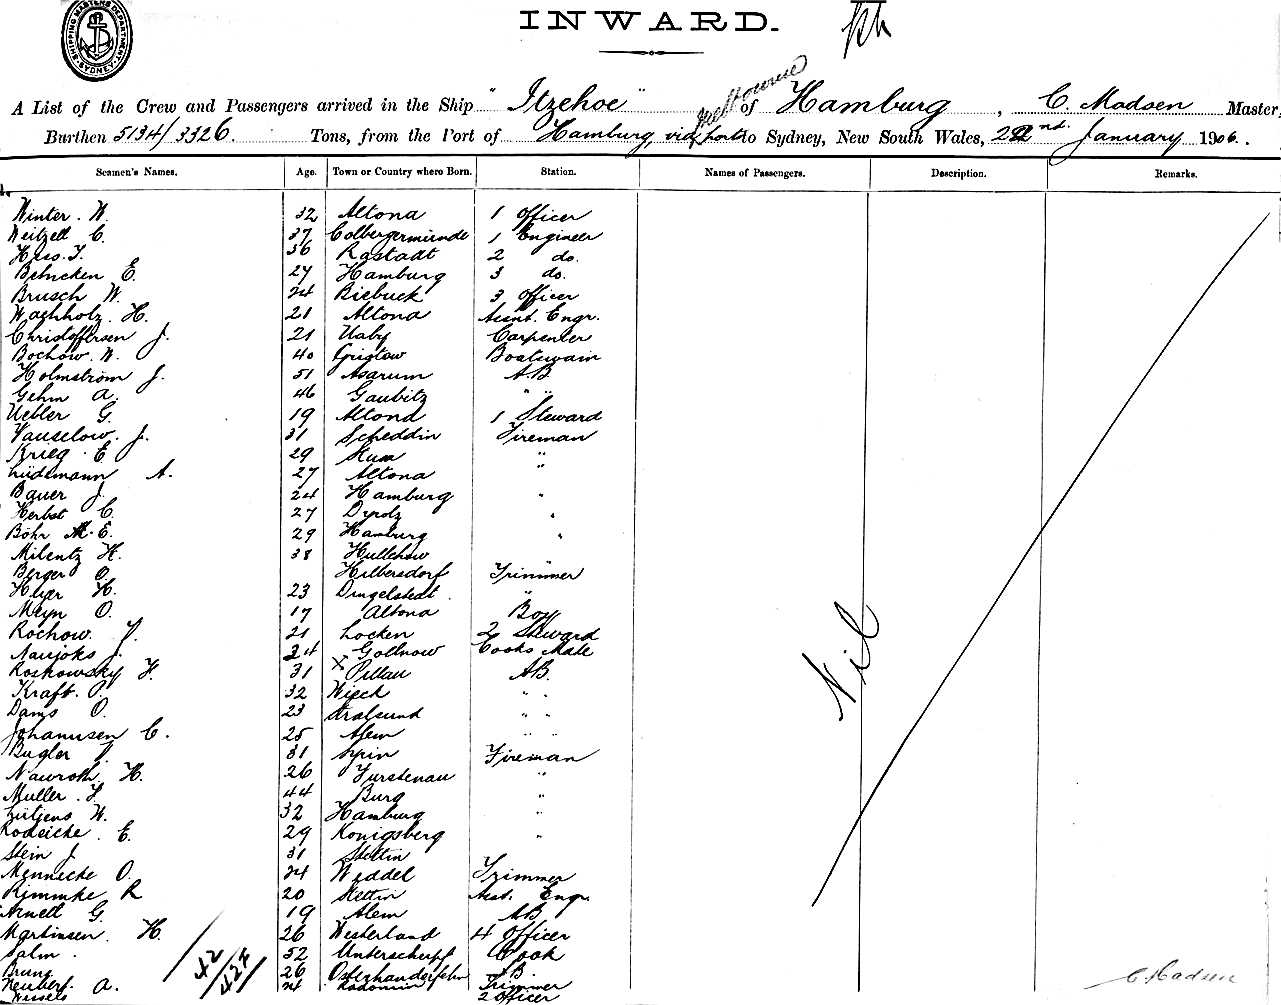 SHIPPING MASTERS DEPARTMENT SYDNEY
INWARD.
Melbourne
A List of the Crew and Passengers arrived in the Ship "Itzehoe" of Hamburg, C. Madsen Master,
Burthen 5134/3326 Tons, from the Port of Hamburg, via ports to Sydney, New South Wales, 22nd January 1906.
Seamen's Names. Age. Town or Country where Born. Station. Names of Passengers. Description. Remarks.
Winter. W. 32 Altona 1 Officer
Weitzell C. 37 Colbergermunde 1 Engineer
Hess. J. 36 Rastadt 2 do.
Behncken E. 27 Hamburg 3 do.
Brusch W. 24 Biebuck 3 Officer
Wachholz. H. 21 Altona Assnt. Engr.
Christoffersen J. 21 Uaby Carpenter
Bochow. W. 40 Gristow Boatswain
Holmstrom J. 51 Asarum A.B
Gehm A. 46 Gaubitz " "
Uebler G. 19 Altona 1 Steward
Vauselow. J. 31 Scheddin Fireman
Krieg E 29 "
Lüdemann A. 27 Altona "
Bauer J. 24 Hamburg "
Herbst C. 27 "
Böhr M. E. 29 Hamburg "
Milentz H. 38 Hullchow
Berger O. Hilbersdorf Trimmer
Heyer H. 23 Dingelstedt. "
Meyn O. 17 Altona Boy
Rochow. F. 21 Locken 2 Steward
Naujoks J. 24 Gollnow Cooks Mate
Roskowsky F. 31 x Pillau AB.
Kraft. P. 32 Wieck " "
Dams O. 23 Stralsund " "
Johannsen C. 25 Alem " "
Bugler J. 31 Fireman
Nawroth H. 26 Furstenau "
Muller. F. 44 Burg "
Lütjens W. 32 Hamburg "
Rodeicke. E. 29 Konigsberg "
Stein J 31 Stettin
Mennecke O. 24 Weddel Trimmer
Rimmke R 20 Stettin Asst. Engr.
Arnell G. 19 Alem AB
Martinsen. H. 26 Westerland 4 Officer
Salm. 52 Cook
Bruns 26 B.
A. 24 Trimmer
Wessels 2 Officer
Nil
42
427
C. Madsen